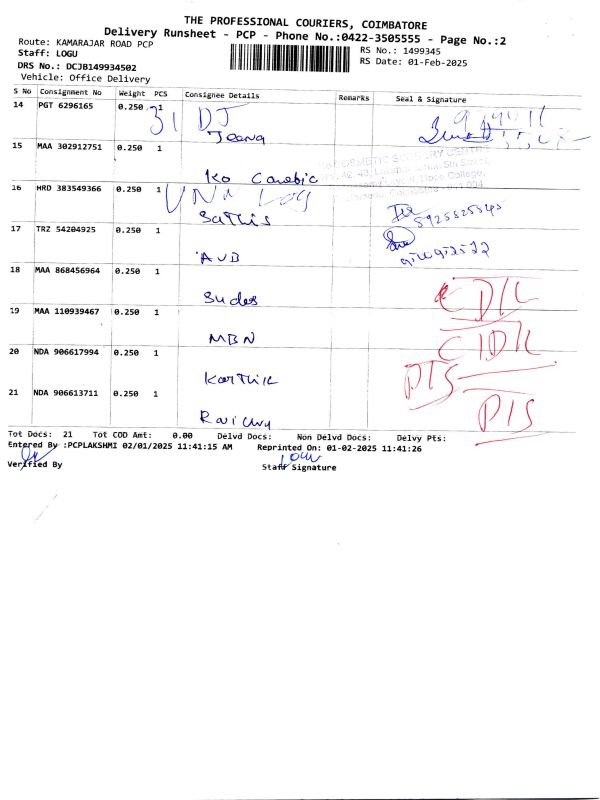 THE PROFESSIONAL COURIERS, COIMBATORE
Delivery Runsheet - PCP - Phone No.:0422-3505555 - Page No.:2
Route: KAMARAJAR ROAD PCP
Staff: LOGU
DRS No.: DCJB149934502
Vehicle: Office Delivery
RS No.: 1499345
RS Date: 01-Feb-2025
S No Consignment No Weight PCS Consignee Details Remarks Seal & Signature
14 PGT 6296165 0.250 1
31 DJ
Jeeng
15 MAA 302912751 0.250 1
16 HRD 383549366 0.250 1
Sathis
17 TRZ 54204925 0.250 1
AVB
18 MAA 868456964 0.250 1
Sudes
19 MAA 110939467 0.250 1
MBN
20 NDA 906617994 0.250 1
Karthik
21 NDA 906613711 0.250 1
D/L
D/L
P/S
P/S
Tot Docs: 21 Tot COD Amt: 0.00 Delvd Docs: Non Delvd Docs: Delvy Pts:
Entered By :PCPLAKSHMI 02/01/2025 11:41:15 AM Reprinted On: 01-02-2025 11:41:26
Verified By
Staff Signature